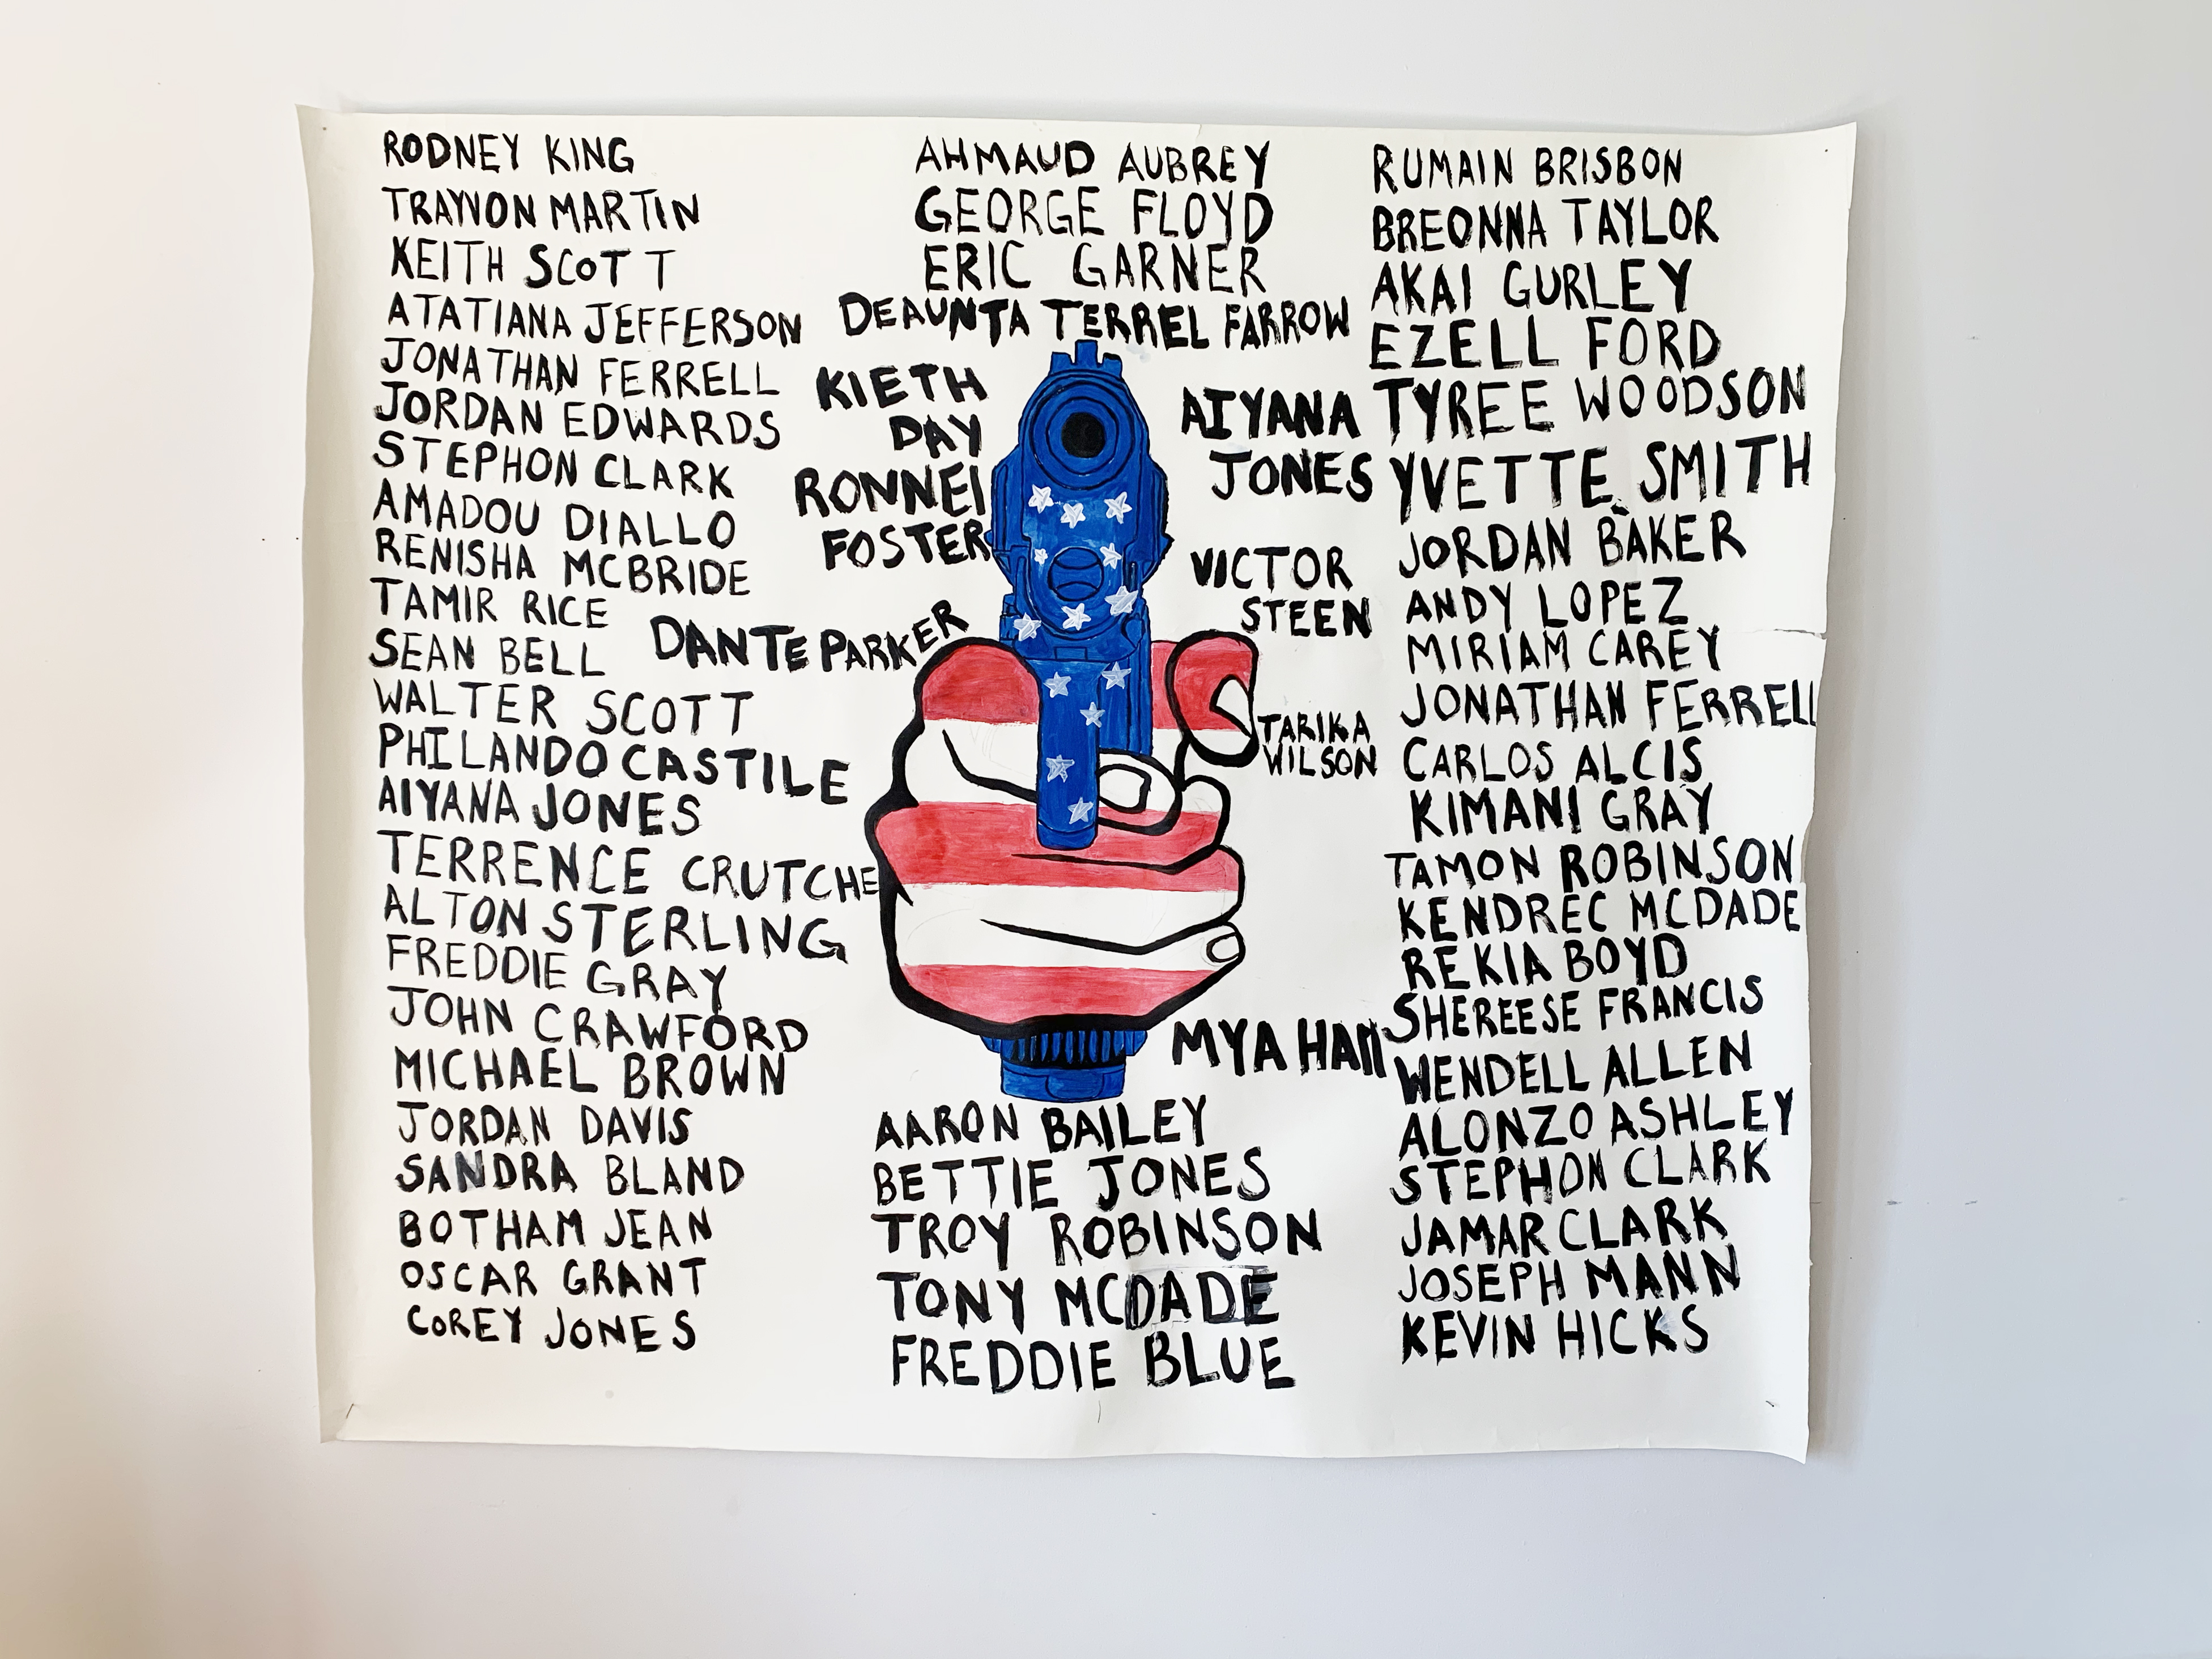 RODNEY KING
TRAYVON MARTIN
KEITH SCOTT
ATATIANA JEFFERSON
JONATHAN FERRELL
JORDAN EDWARDS
STEPHON CLARK
AMADOU DIALLO
RENISHA MCBRIDE
TAMIR RICE
SEAN BELL
WALTER SCOTT
PHILANDO CASTILE
AIYANA JONES
TERRENCE CRUTCHE
ALTON STERLING
FREDDIE GRAY
JOHN CRAWFORD
MICHAEL BROWN
JORDAN DAVIS
SANDRA BLAND
BOTHAM JEAN
OSCAR GRANT
COREY JONES
AHMAUD AUBREY
GEORGE FLOYD
ERIC GARNER
DEAUNTA TERREL FARROW
KIETH
DAY
RONNEI
FOSTER
DANTE PARKER
AIYANA
JONES
VICTOR
STEEN
TARIKA
WILSON
MYA HAll
AARON BAILEY
BETTIE JONES
TROY ROBINSON
TONY MCDADE
FREDDIE BLUE
RUMAIN BRISBON
BREONNA TAYLOR
AKAI GURLEY
EZELL FORD
TYREE WOODSON
YVETTE SMITH
JORDAN BAKER
ANDY LOPEZ
MIRIAM CAREY
JONATHAN FERRELL
CARLOS ALCIS
KIMANI GRAY
TAMON ROBINSON
KENDREC MCDADE
REKIA BOYD
SHEREESE FRANCIS
WENDELL ALLEN
ALONZO ASHLEY
STEPHON CLARK
JAMAR CLARK
JOSEPH MANN
KEVIN HICKS